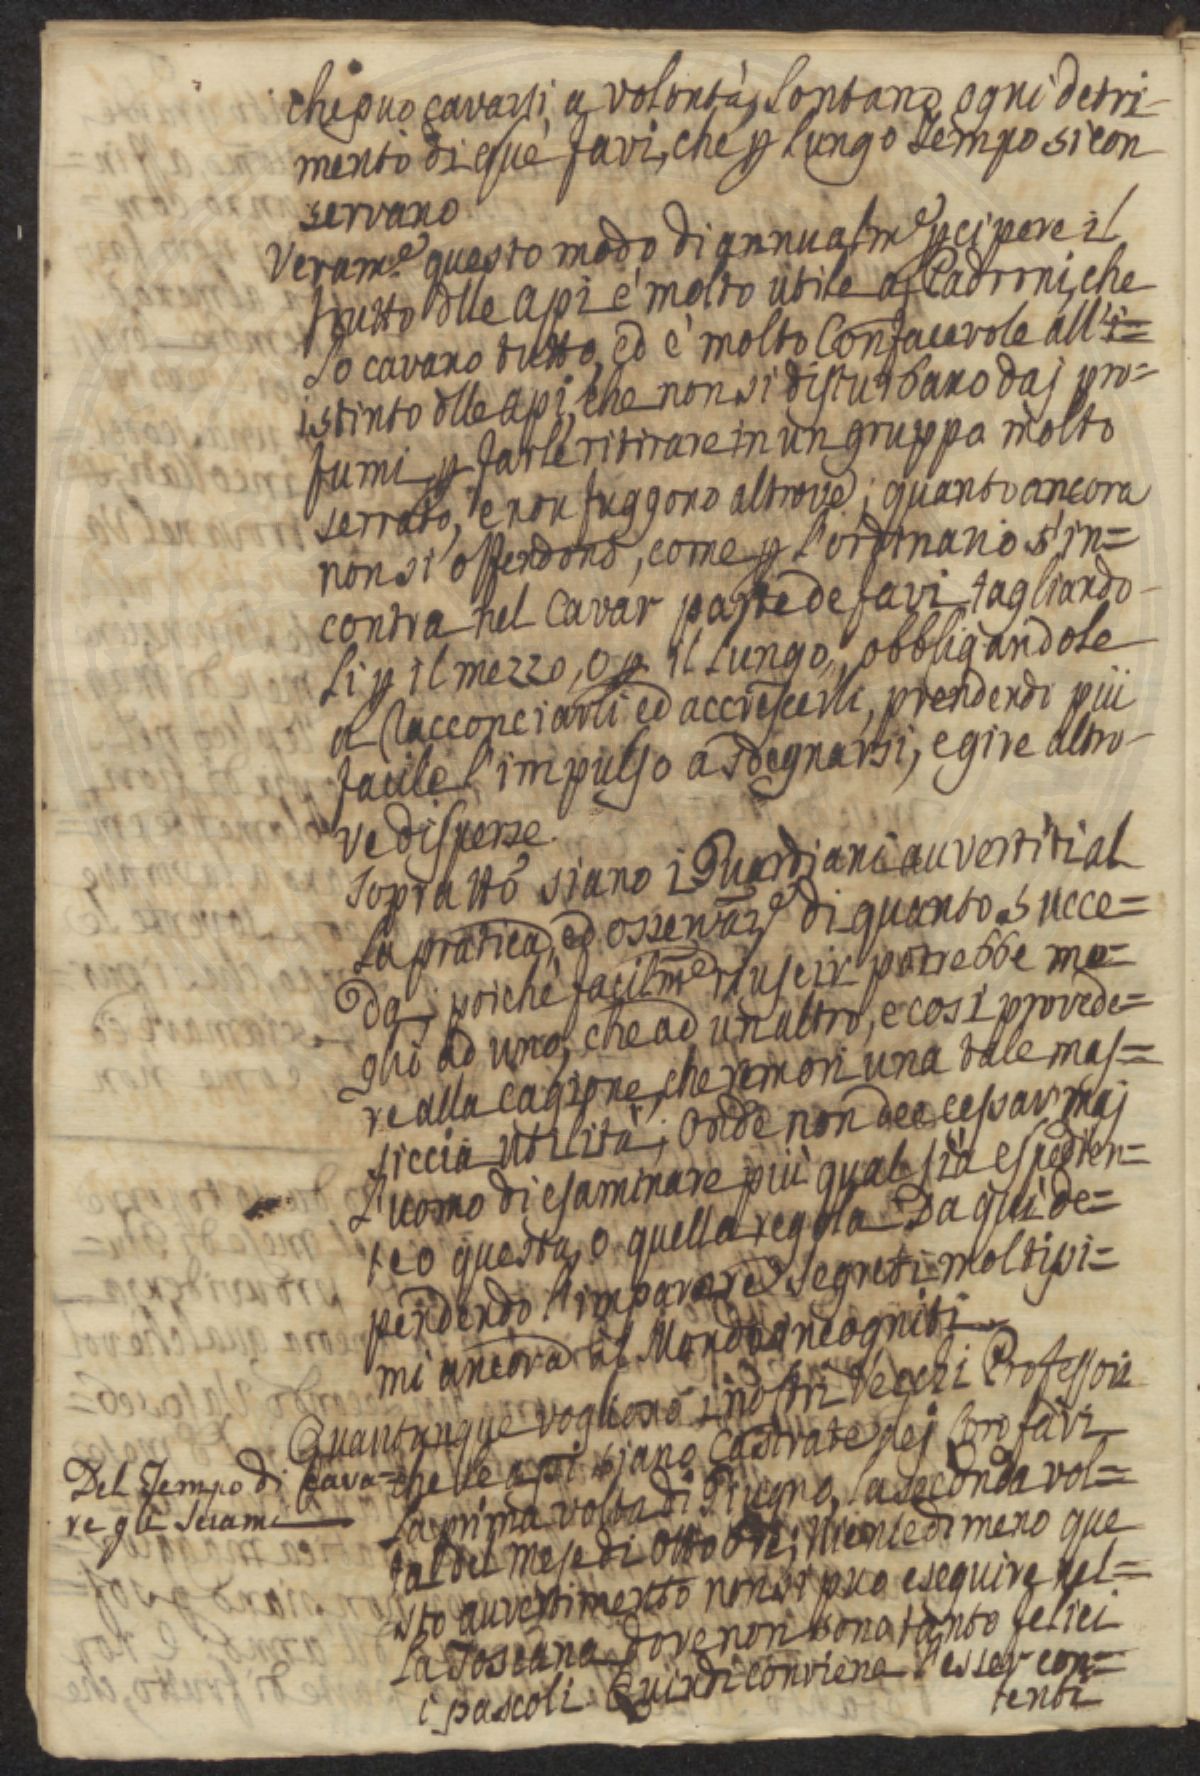 che puo cavarsi, a volontà, lontano ogni detri-
mento di que' favi, che p lungo tempo si con
servano
Veram.e questo modo di annualm.e pcipere il
frutto dlle Api è molto utile a Padroni, che
lo cavano tutto, ed è molto Confacevole all' i=
istinto dlle api, che non si disturbano daj pro=
fumi p farle ritirare in un gruppo molto
serrato, e non fuggono altrove; quanto ancora
non si offendono, come p l'ordinario s'in=
contra nel Cavar parte de favi, tagliando-
li p il mezzo, o p il lungo, obbligandole
a racconciarli ed accrescerli, prendendo più
facile l'impulso a sdegnarsi, e gire altro-
ve disperse.
Sopratto siano i Guardiani auvertiti al
la pratica, ed osservaz.e di quanto succe=
da; poiche facilm.e riuscir potrebbe me=
glio ad uno, che ad un altro, e così provede=
re alla cagione, che remori una tale mas=
siccia utilità; Onde non dee cessar maj
l'uomo di esaminare più qual sia espedien=
te o questa, o quella regola. Da qui de=
pendendo l'imparare segreti moltissi=
mi ancora al Mondo incogniti
Quantunque vogliono i nostri Vecchi Professori
Del Tempo di Cava=
re gli Sciami
che le api siano Castrate dej loro favi
la prima volta di Giugno, la seconda vol=
ta del mese di Ottobre; Nientedimeno que
sto auvertimento non si puo eseguire nel=
la Toscana dove non sono tanto felici
i pascoli. Quindi conviene l'esser con=
tenti